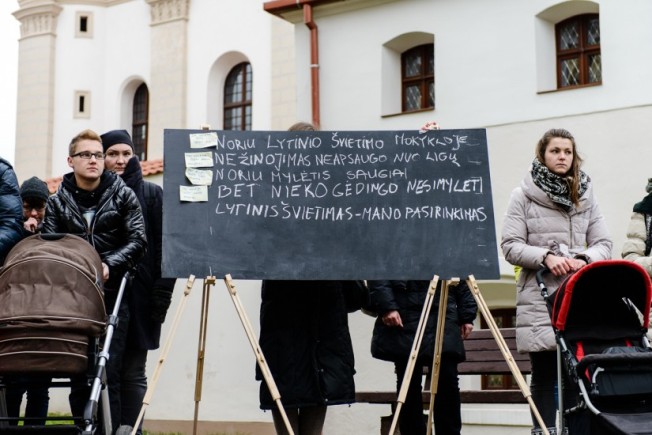 NORIU LYTINIO ŠVIETIMO MOKYKLOJE
NEŽINOJIMAS NEAPSAUGO NUO LIGŲ
NORIU MYLĖTIS SAUGIAI
BET NIEKO GĖDINGO NESIMYLĖTI
LYTINIS ŠVIETIMAS-MANO PASIRINKIMAS